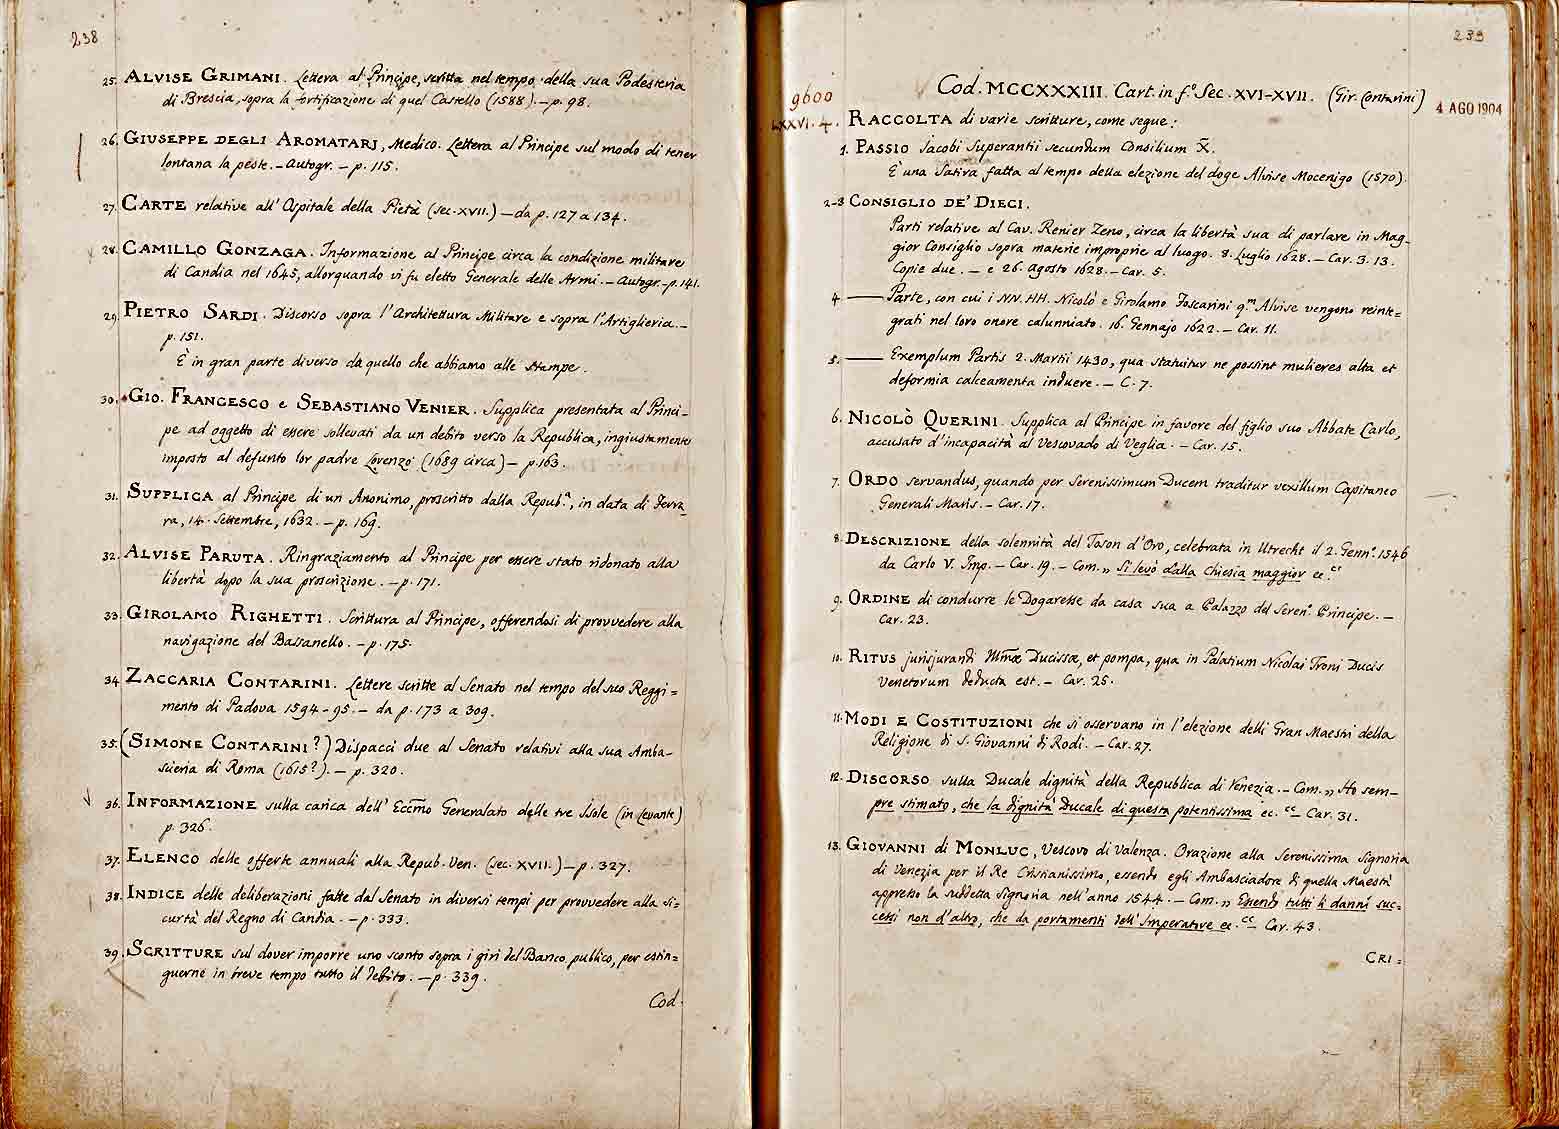 238
25. ALVISE GRIMANI. Lettera al Principe, scritta nel tempo della sua Podesteria
di Brescia, sopra la fortificazione di quel Castello (1588). – p. 98.
26. GIUSEPPE DEGLI AROMATARJ, Medico. Lettera al Principe sul modo di tener
lontana la peste. – Autogr. – p. 115.
27. CARTE relative all' Ospitale della Pietà (sec. XVII.) – da p. 127 a 134.
28. CAMILLO GONZAGA. Informazione al Principe circa la condizione militare
di Candia nel 1645, allorquando vi fu eletto Generale delle Armi. – Autogr. – p. 141.
29. PIETRO SARDI. Discorso sopra l'Architettura Militare e sopra l'Artiglieria. –
p. 151.
È in gran parte diverso da quello che abbiamo alle stampe.
30. GIO. FRANCESCO e SEBASTIANO VENIER. Supplica presentata al Princi-
pe ad oggetto di essere sollevati da un debito verso la Repubblica, ingiustamente
imposto al defunto lor padre Lorenzo (1689 circa) – p. 163.
31. SUPPLICA al Principe di un Anonimo, proscritto dalla Repub.ª, in data di Ferra-
ra, 14. Settembre, 1632. – p. 169.
32. ALVISE PARUTA. Ringraziamento al Principe per essere stato ridonato alla
libertà dopo la sua proscrizione. – p. 171.
33. GIROLAMO RIGHETTI. Scrittura al Principe, offerendosi di provvedere alla
navigazione del Bassanello. – p. 175.
34. ZACCARIA CONTARINI. Lettere scritte al Senato nel tempo del suo Reggi=
mento di Padova 1594-95. – da p. 173 a 309.
35. (SIMONE CONTARINI?) Dispacci due al Senato relativi alla sua Amba-
scieria di Roma (1615?). – p. 320.
36. INFORMAZIONE sulla carica dell' Ecc̅mo Generalato delle tre Isole (in Levante)
p. 326.
37. ELENCO delle offerte annuali alla Repub. Ven. (sec. XVII.) – p. 327.
38. INDICE delle deliberazioni fatte dal Senato in diversi tempi per provvedere alla si=
curtà del Regno di Candia. – p. 333.
39. SCRITTURE sul dover imporre uno sconto sopra i giri del Banco publico, per estin=
guerne in breve tempo tutto il debito. – p. 339.
Cod.
239
Cod. MCCXXXIII. Cart. in f.º Sec. XVI-XVII. (Gir. Contarini)
4 AGO 1904
9600
LXXVI. 4.
RACCOLTA di varie scritture, come segue:
1. PASSIO Jacobi Superantii secundum Consilium X̅.
È una Satira fatta al tempo della elezione del doge Alvise Mocenigo (1570).
2-3 CONSIGLIO DE' DIECI.
Parti relative al Cav. Renier Zeno, circa la libertà sua di parlare in Mag-
gior Consiglio sopra materie improprie al luogo. 8. Luglio 1628. – Car. 3. 13.
Copie due. – e 26. Agosto 1628. – Car. 5.
4. —— Parte, con cui i NN. HH. Nicolò e Girolamo Foscarini q.m Alvise vengono reinte=
grati nel loro onore calunniato. 16. Gennajo 1622. – Car. 11.
5. —— Exemplum Partis 2. Martii 1430, qua statuitur ne possint mulieres alta et
deformia calceamenta induere. – C. 7.
6. NICOLÒ QUERINI. Supplica al Principe in favore del figlio suo Abbate Carlo,
accusato d'incapacità al Vescovado di Veglia. – Car. 15.
7. ORDO servandus, quando per Serenissimum Ducem traditur vexillum Capitaneo
Generali Maris. – Car. 17.
8. DESCRIZIONE della solennità del Toson d'Oro, celebrata in Utrecht il 2. Genn.º 1546
da Carlo V. Imp. – Car. 19. – Com. „ Si levò dalla chiesia maggior ec.cc
9. ORDINE di condurre le Dogaresse da casa sua a Palazzo del Seren.º Principe. –
Car. 23.
10. RITUS jurisjurandi Ill̅mæ Ducissæ, et pompa, qua in Palatium Nicolai Troni Ducis
Venetorum deducta est. – Car. 25.
11. MODI E COSTITUZIONI che si osservano in l'elezione delli Gran Maestri della
Religione di S. Giovanni di Rodi. – Car. 27.
12. DISCORSO sulla Ducale dignità della Republica di Venezia. – Com. „ Ho sem-
pre stimato, che la dignità Ducale di questa potentissima ec.cc – Car. 31.
13. GIOVANNI di MONLUC, Vescovo di Valenza. Orazione alla Serenissima Signoria
di Venezia per il Re Cristianissimo, essendo egli Ambasciadore di quella Maestà
appresso la suddetta Signoria nell'anno 1544. – Com. „ Essendo tutti li danni suc=
cessi non d'altro, che da portamenti dell'Imperative ec.cc – Car. 43.
CRI=